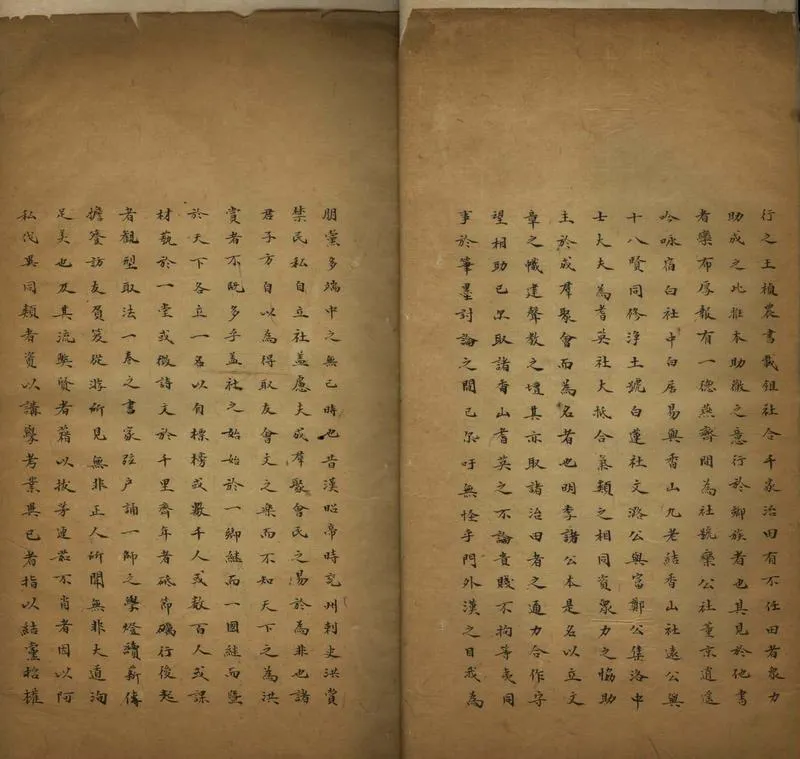 行之王楨農書載鉏社合千家治田有不任田者衆力
助成之此推本助徹之意行於鄉族者也其見於他書
者欒布厚報有一德燕齊間為社號欒公社董京逍遙
吟咏宿白社中白居易與香山九老結香山社遠公與
十八賢同修淨土號白蓮社文潞公與富鄭公集洛中
士大夫為耆英社大抵合氣類之相同資衆力之恊助
主於成羣聚會而為名者也明季諸公本是名以立文
章之幟建聲教之壇其亦取諸治田者之通力合作守
望相助已尔取諸香山耆英之不論貴賤不拘等夷同
事於筆墨討論之間已尔吁無怪乎門外漢之目我為
朋黨多端中之無已時也昔漢昭帝時兗州刺史洪賞
禁民私自立社盖慮夫成羣聚會民之易於為非也諸
君子方自以為得取友會文之樂而不知天下之為洪
賞者不既多乎盖社之始始於一鄉繼而一國繼而暨
於天下各立一名以自標榜或數千人或數百人或課
材藝於一堂或徵詩文於千里齊年者砥節礪行後起
者觀型取法一卷之書家弦户誦一師之學燈續薪傳
擔簦訪友負笈從游所見無非正人所聞無非大道洵
足美也及其流獘賢者藉以拔茅連茹不肖者因以阿
私伐異同類者資以講學考業異已者指以結黨招權